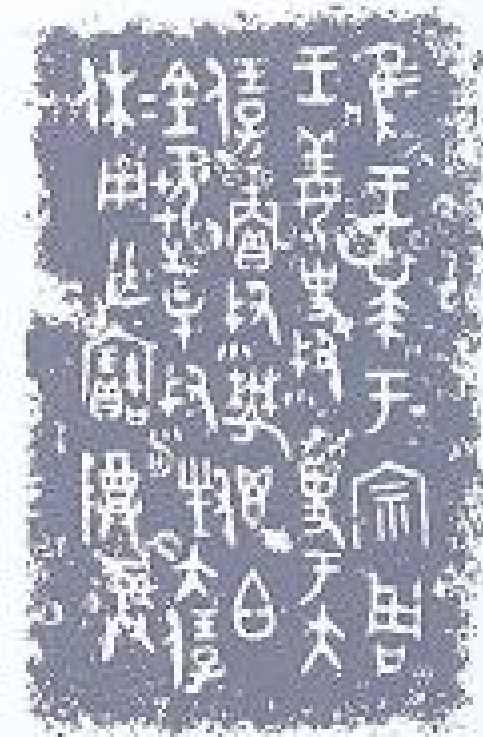 隹王𠦪于宗周
王姜史叔事于大
保賞叔鬱鬯白
金牛叔對大保
休用乍寶尊彝